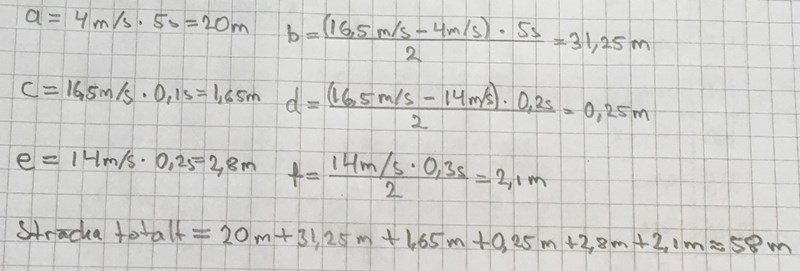 a = 4m/s · 5s = 20m b = (16,5m/s - 4m/s) · 5s / 2 = 31,25m
c = 16,5m/s · 0,1s = 1,65m d = (16,5m/s - 14m/s) · 0,2s / 2 = 0,25m
e = 14m/s · 0,2s = 2,8m f = 14m/s · 0,3s / 2 = 2,1m
Sträcka totalt = 20m + 31,25m + 1,65m + 0,25m + 2,8m + 2,1m ≈ 58m